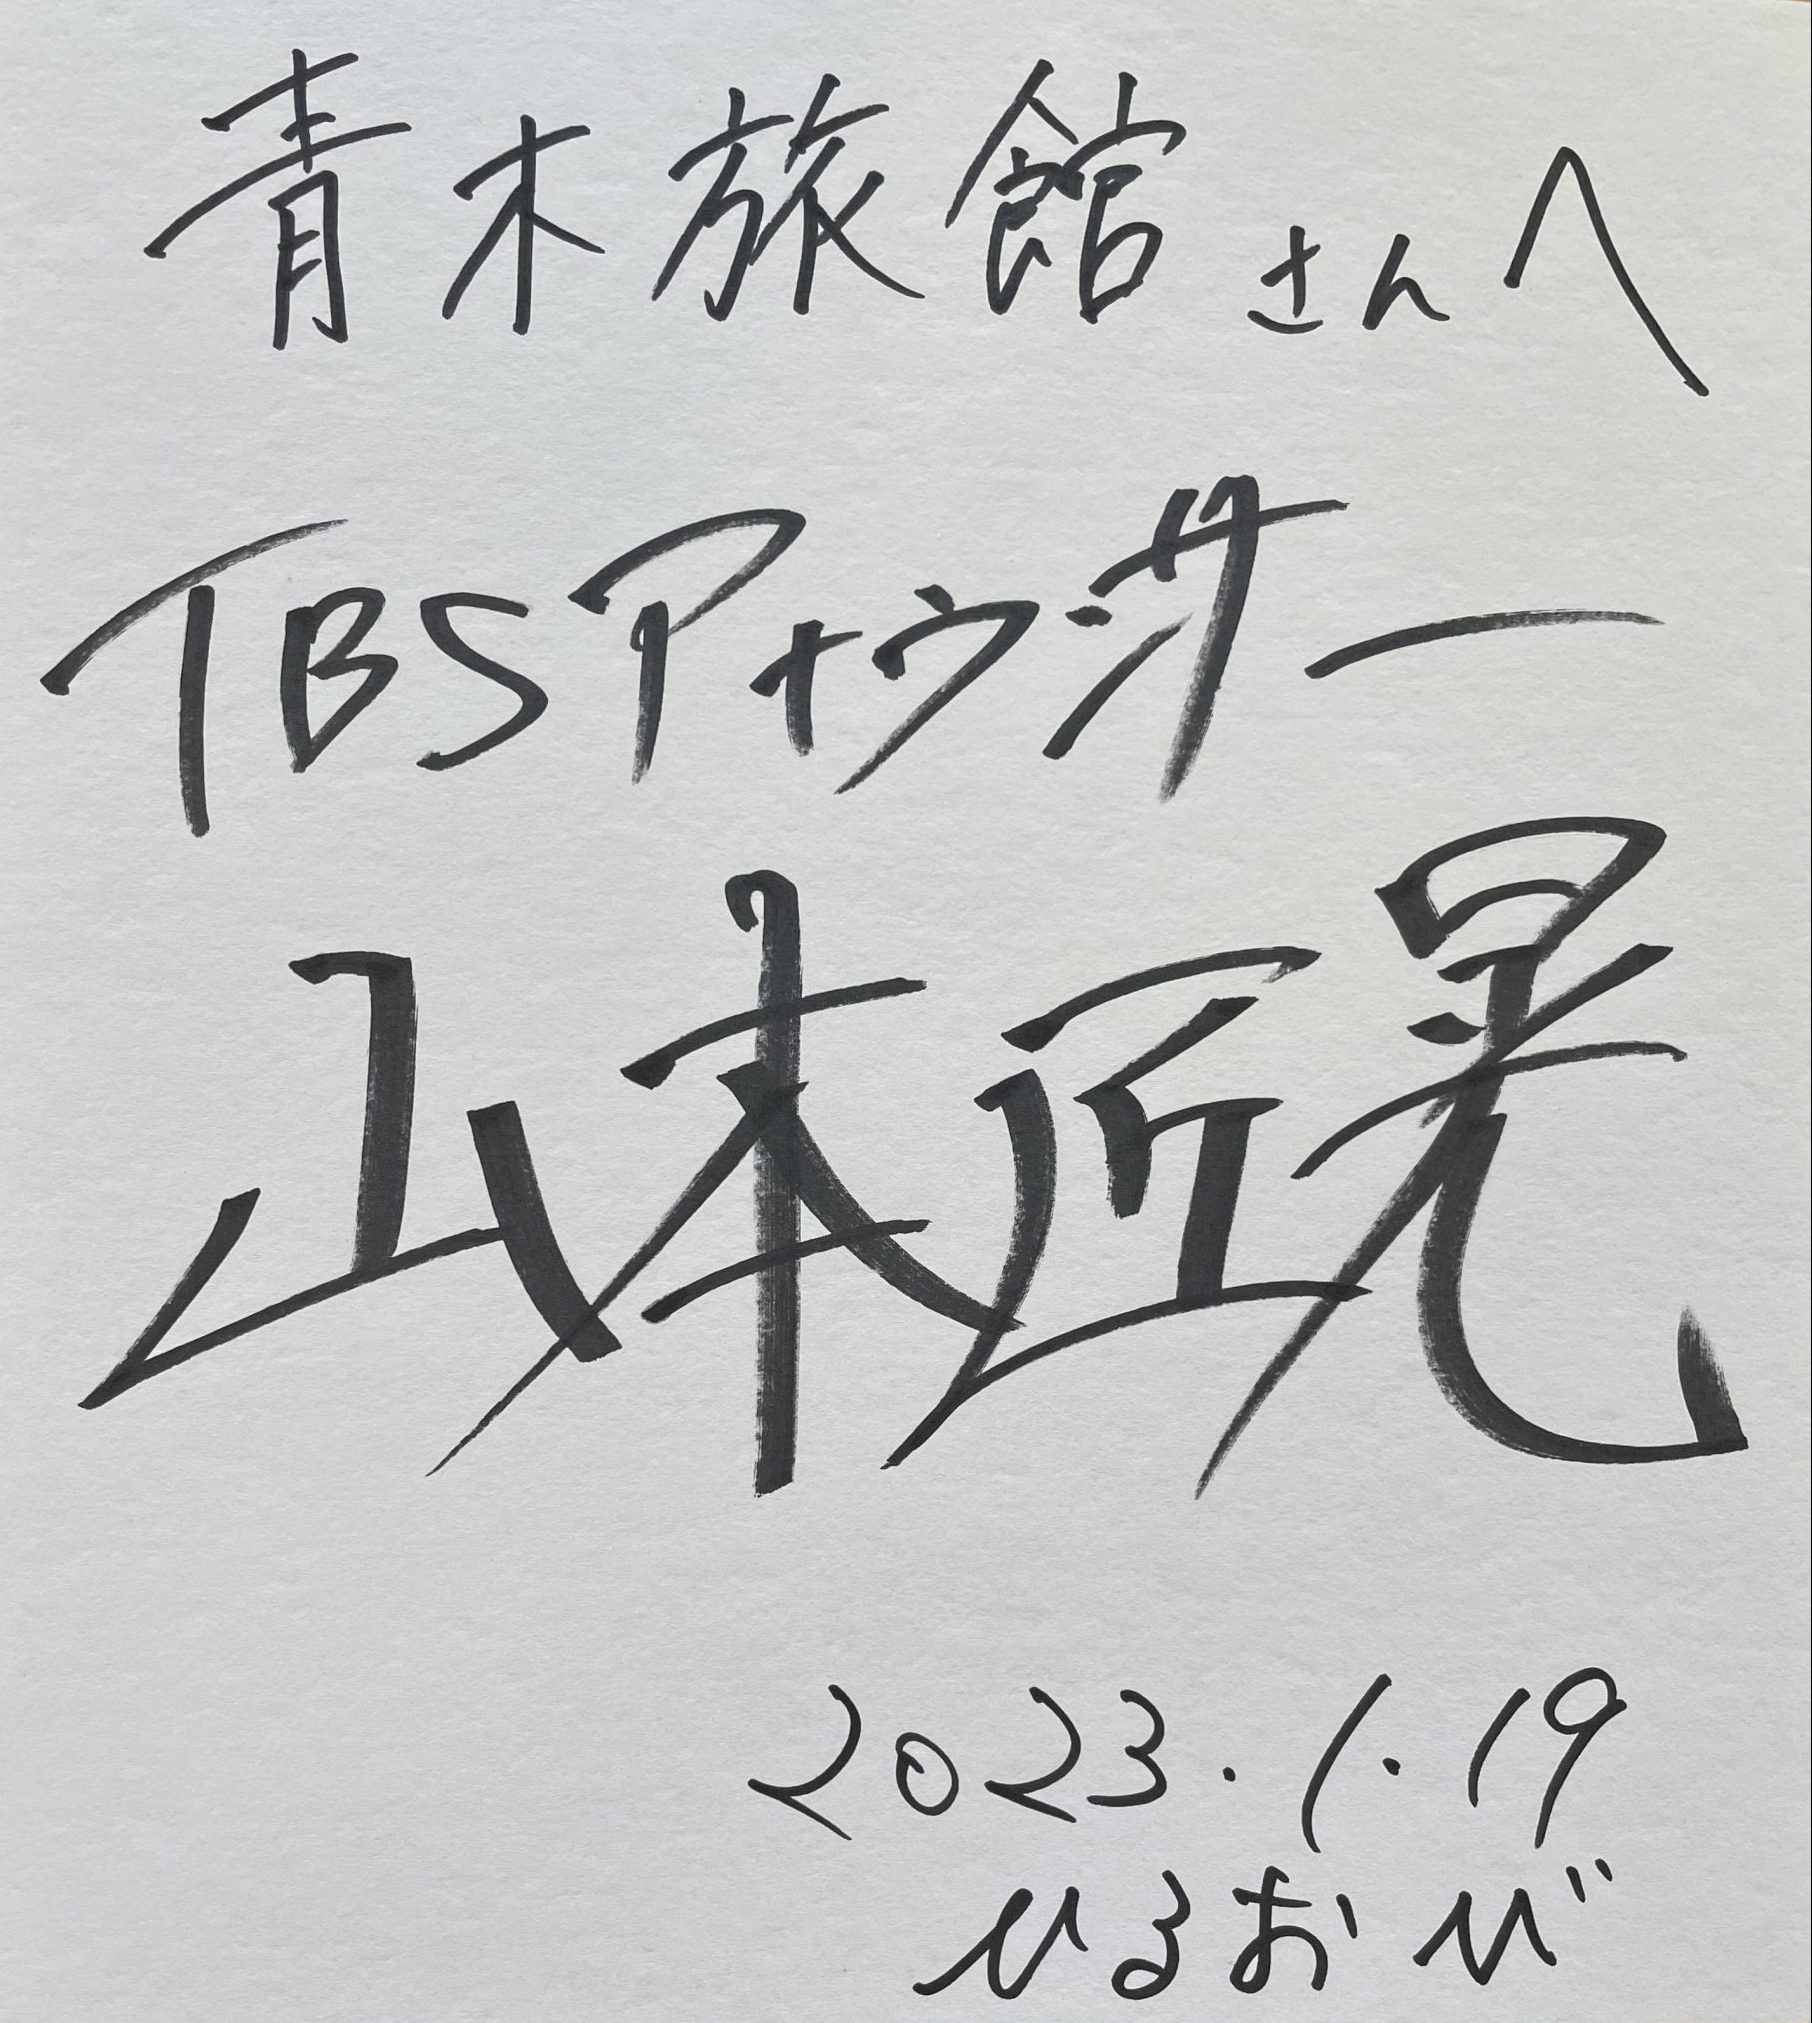 青木旅館さんへ
TBSアナウンサー
山本匠晃
2023.1.19
ひるおび